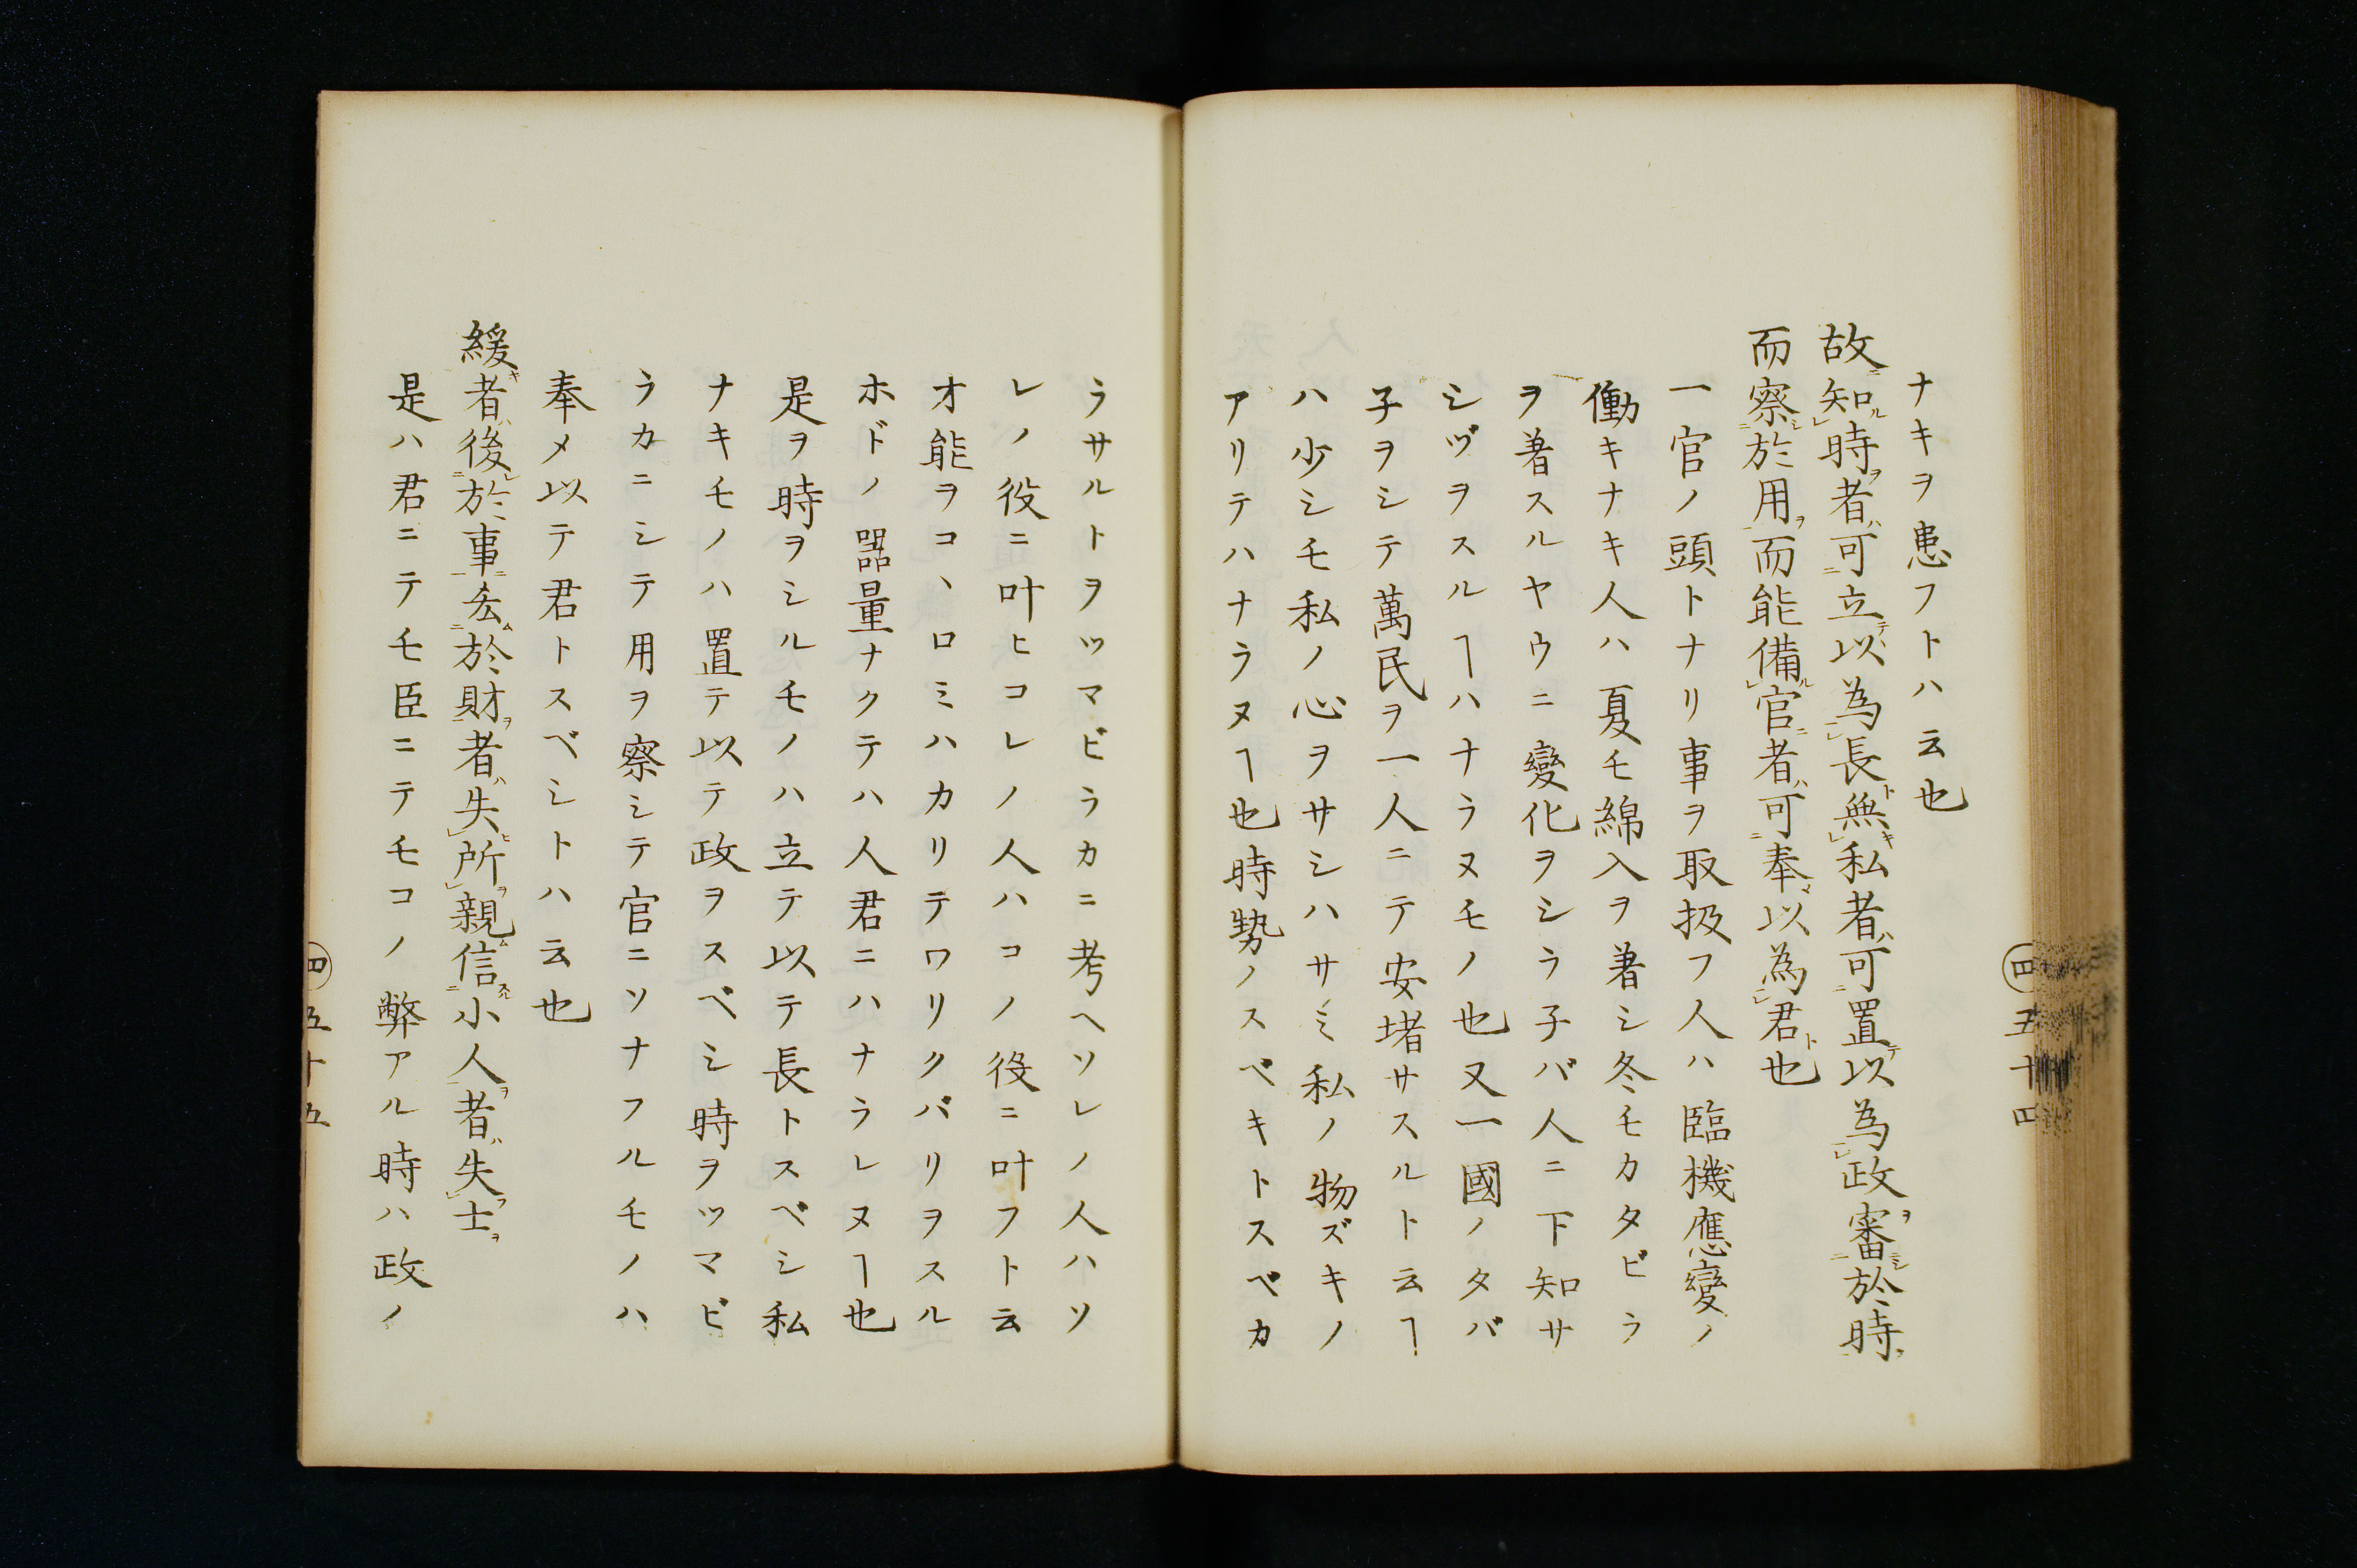 ナキヲ患フトハ云也
故ニ知ルㇾ時ヲ者ハ可ニ立テ以為ㇾ長ト無キㇾ私者ハ可ニ置テ以為ㇾ政ヲ審ニシ於時ヲ
而察ニシ於用ヲ而能備ルㇾ官ニ者ハ可ニ奉マ以為ㇾ君ト也
一官ノ頭トナリ事ヲ取扱フ人ハ臨機應變ノ
働キナキ人ハ夏モ綿入ヲ著シ冬モカタビラ
ヲ著スルヤウニ變化ヲシラ子バ人ニ下知サ
シヅヲスルヿハナラヌモノ也又一國ノタバ
子ヲシテ萬民ヲ一人ニテ安堵サスルト云ヿ
ハ少シモ私ノ心ヲサシハサミ私ノ物ズキノ
アリテハナラヌヿ也時勢ノスベキトスベカ
四五十四
ラサルトヲツマビラカニ考ヘソレノ人ハソ
レノ役ニ叶ヒコレノ人ハコノ役ニ叶フト云
オ能ヲコヽロミハカリテワリクバリヲスル
ホドノ器量ナクテハ人君ニハナラレヌヿ也
是ヲ時ヲシルモノハ立テ以テ長トスベシ私
ナキモノハ置テ以テ政ヲスベシ時ヲツマビ
ラカニシテ用ヲ察シテ官ニソナフルモノハ
奉メ以テ君トスベシトハ云也
緩キ者ハ後ニㇾ於事ニ𠫤ニム於財ヲ者ハ失ヒㇾ所ヲㇾ親ム信ニスル小人ヲ者ハ失フㇾ士ヲ
是ハ君ニテモ臣ニテモコノ弊アル時ハ政ノ
四五十五